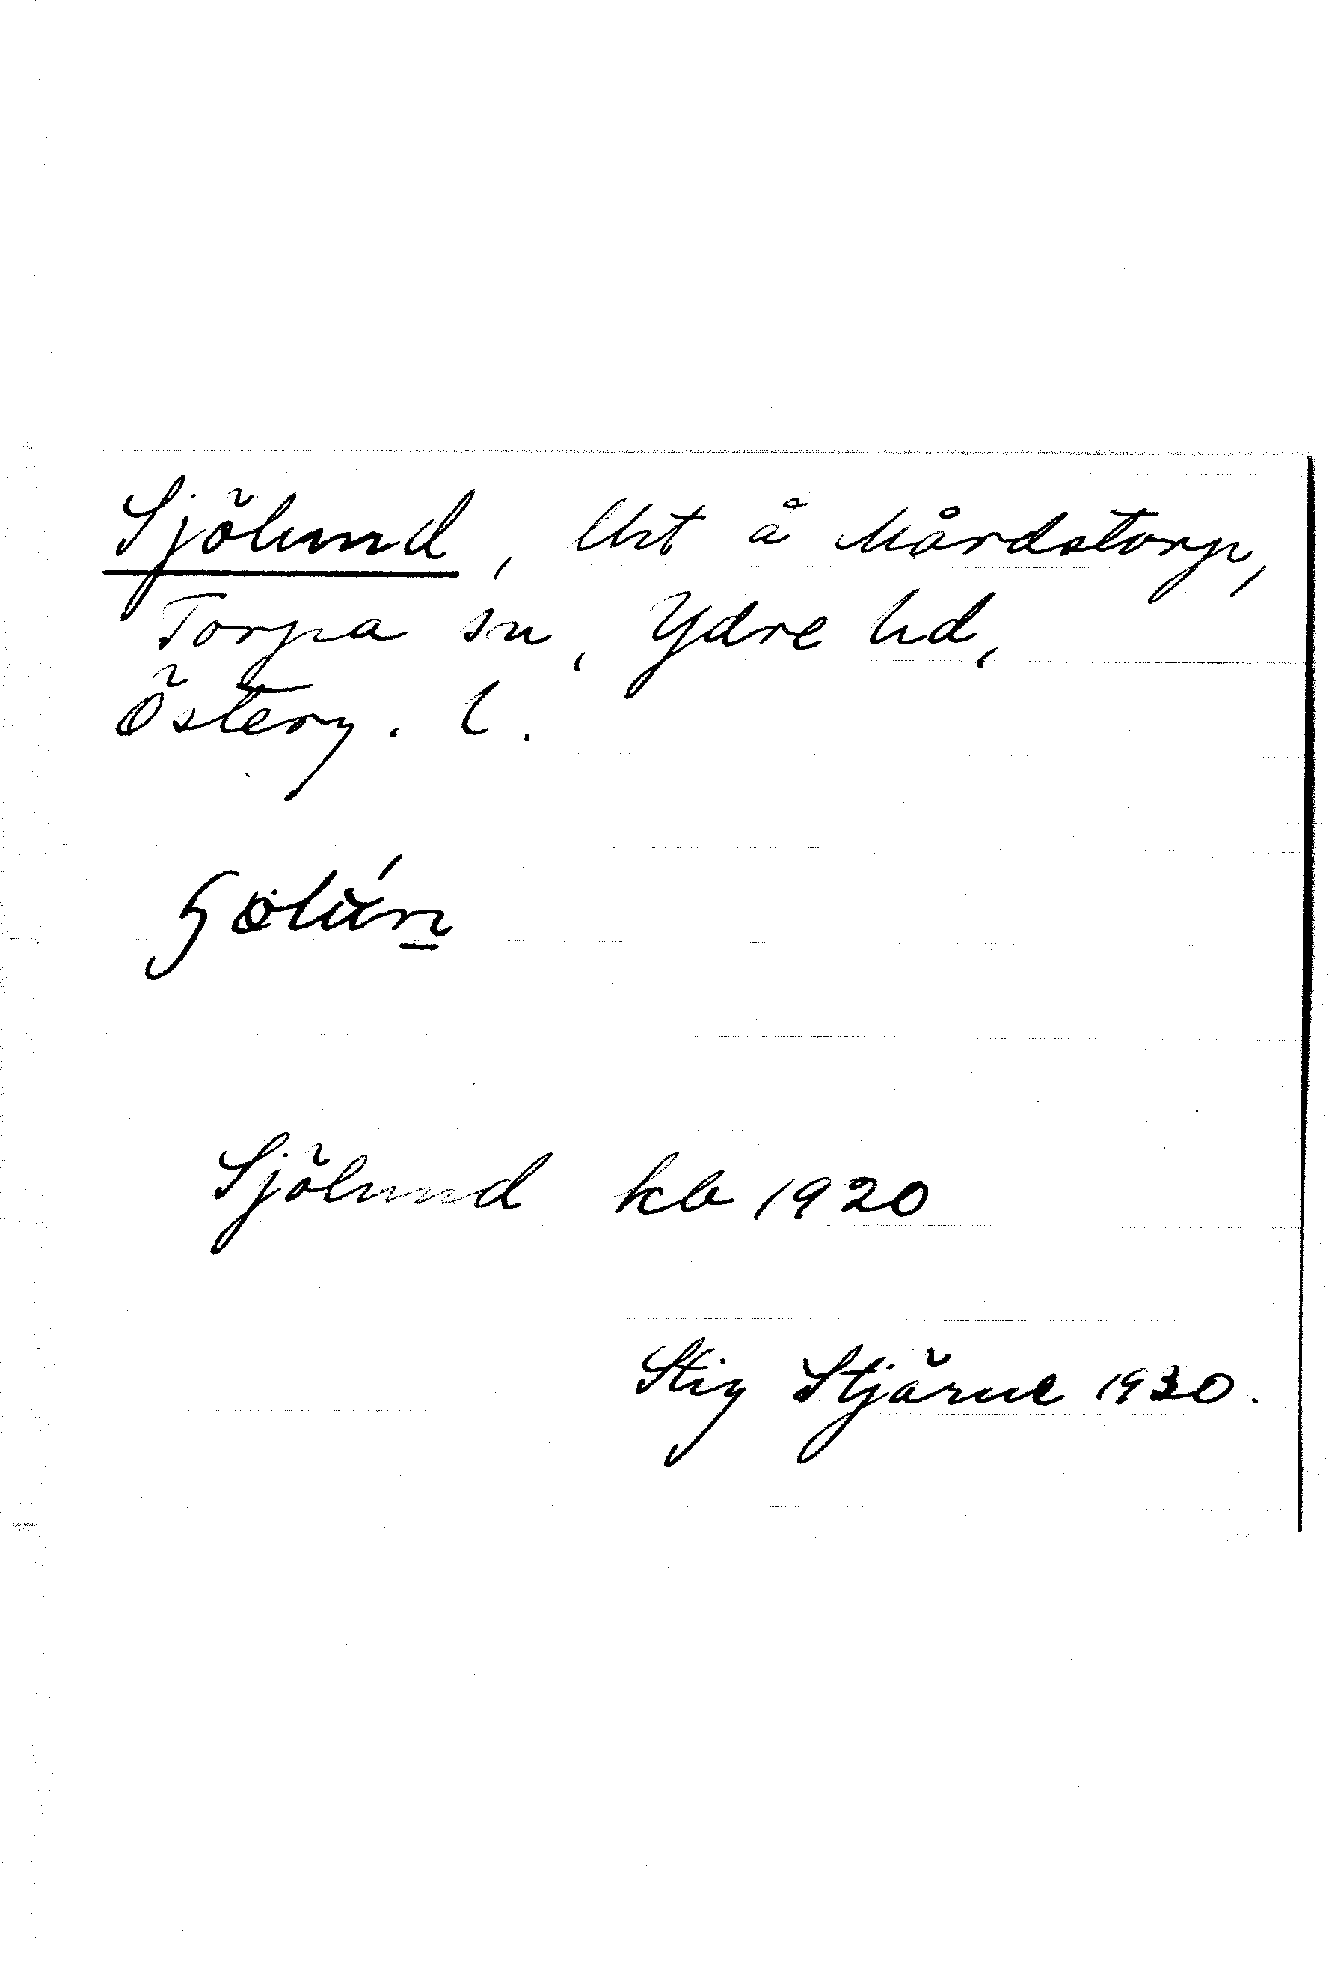 Sjölund, lht å Mårdstorp,
Torpa sn, Ydre hd,
Österg. l.
Sjölund kb 1920
Stig Stjärne 1930.